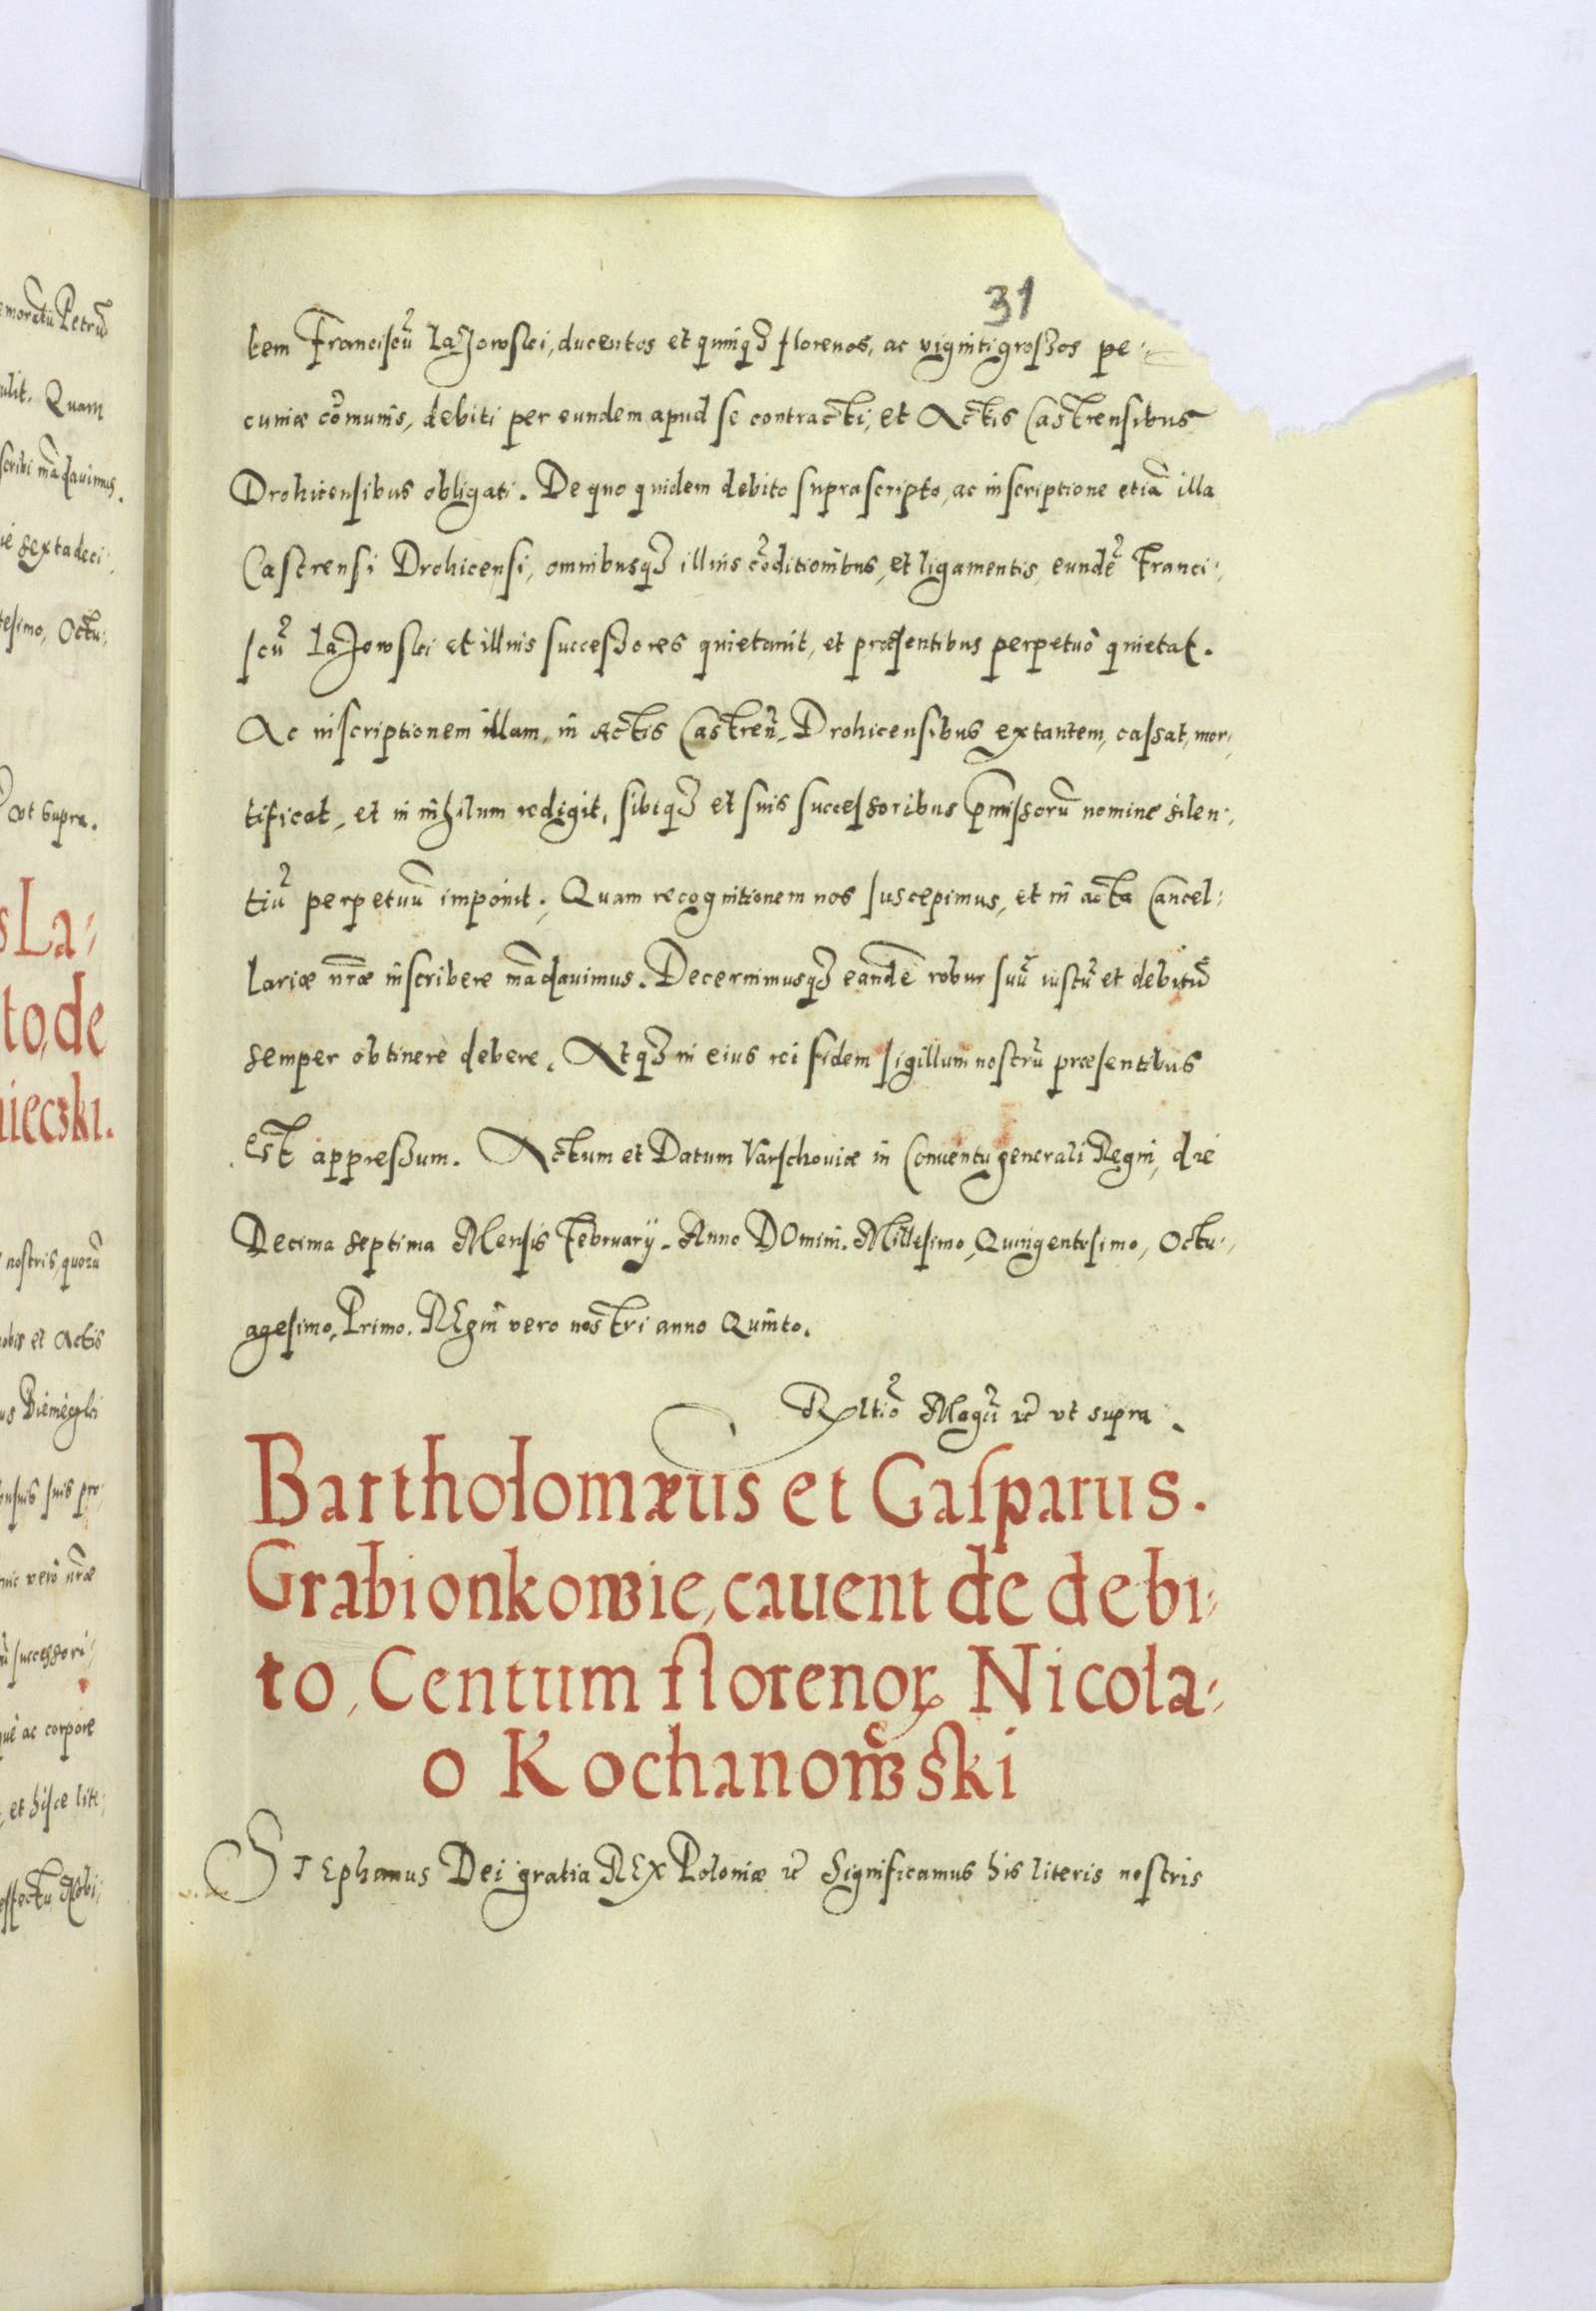 31
tem Franciscũ Lazowski, ducentos et quinqȝ florenos, ac viginti grossos pe-
cuniæ cõmunis, debiti per eundem apud se contracti, et Actis Castrensibus
Drohicensibus obligati. De quo quidem debito suprascripto, ac inscriptione etiã illa
Castrensi Drohicensi, omnibusqȝ illius cõditionibus, et ligamentis, eundẽ Franci-
scũ Lazowski et illius successores quietavit, et præsentibus perpetuò quietat.
Ac inscriptionem illam, in Actis Castreñ. Drohicensibus extantem, cassat, mor-
tificat, et in nihilum redigit, sibiqȝ et suis successoribus p̃missorũ nomine silen-
tiũ perpetuũ imponit. Quam recognitionem nos suscepimus, et in acta Cancel-
lariæ nr̃æ inscribere mãdavimus. Decernimusqȝ eandẽ robur suũ iustũ et debitũ
semper obtinere debere. Atqȝ in eius rei fidem sigillum nostrũ præsentibus
est appressum. Actum et Datum Varschoviæ in Conventu generali Regni, die
Decima septima Mensis Februarÿ. Anno DOmini. Millesimo, Quingentesimo, Octu-
agesimo, Primo. REgni vero nostri anno Quinto.
Rltiõ Magci ꝛc̃ vt supra.
Bartholomæus et Gasparus.
Grabionkowie, cavent de debi-
to, Centum florenoꝝ Nicola-
o Kochanowski
STEphanus Dei gratia REx Poloniæ ꝛc̃ Significamus his literis nostris
emoratũ Petrũ
ulit. Quam
scribi mãdavimus.
ie sexta deci-
tesimo, Octu-
vt supra.
s La-
to, de
nieczki.
nostris, quorũ
nobis et Actis
pro-
vero nr̃æ
successori-
què ac corpore
et hisce lite-
effectu